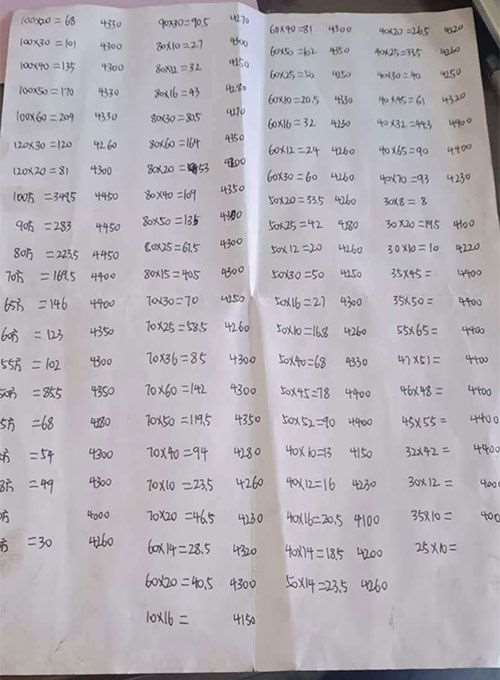 100x20=68 4330
100x30=101 4300
100x40=135 4300
100x50=170 4330
100x60=209 4330
120x30=120 4260
120x20=81 4300
100方=349.5 4450
90方=283 4450
80方=223.5 4450
70方=169.5 4400
65方=146 4400
60方=123 4350
55方=102 4300
50方=85.5 4350
5方=68 4280
方=54 4300
8方=49 4300
方 4000
方=30 4260
90x30=90.5 4270
80x10=27 4300
80x12=32 4250
80x16=43 4280
80x30=80.5 4270
80x60=164 4350
80x20=53 4300
80x40=109 4350
80x50=135
80x25=67.5 4300
80x15=40.5 4300
70x30=70 4250
70x25=58.5 4260
70x36=85 4300
70x60=142 4300
70x50=119.5 4350
70x40=94 4280
70x10=23.5 4260
70x20=46.5 4230
60x14=28.5 4320
60x20=40.5 4300
10x16= 4150
60x40=81 4300
60x50=102 4350
60x25=50 4250
60x10=20.5 4330
60x16=32 4230
60x12=24 4260
60x30=60 4260
50x20=33.5 4260
50x25=42 4280
50x12=20 4260
50x30=50 4250
50x16=27 4300
50x10=16.8 4260
50x40=68 4330
50x45=78 4400
50x52=90 4400
40x10=13 4150
40x12=16 4230
40x16=20.5 4100
40x14=18.5 4200
50x14=23.5 4260
40x20=26.5 4220
40x25=33.5 4260
40x30=40 4250
40x45=61 4320
40x32=44.3 4400
40x65=90 4400
40x70=93 4230
30x8=8
30x20=19.5 4100
30x10=10 4220
35x45= 4400
35x50= 4400
55x65= 4400
47x57= 4400
46x48= 4400
45x55= 4400
32x42= 4400
30x12= 400
35x10= 400
25x10=